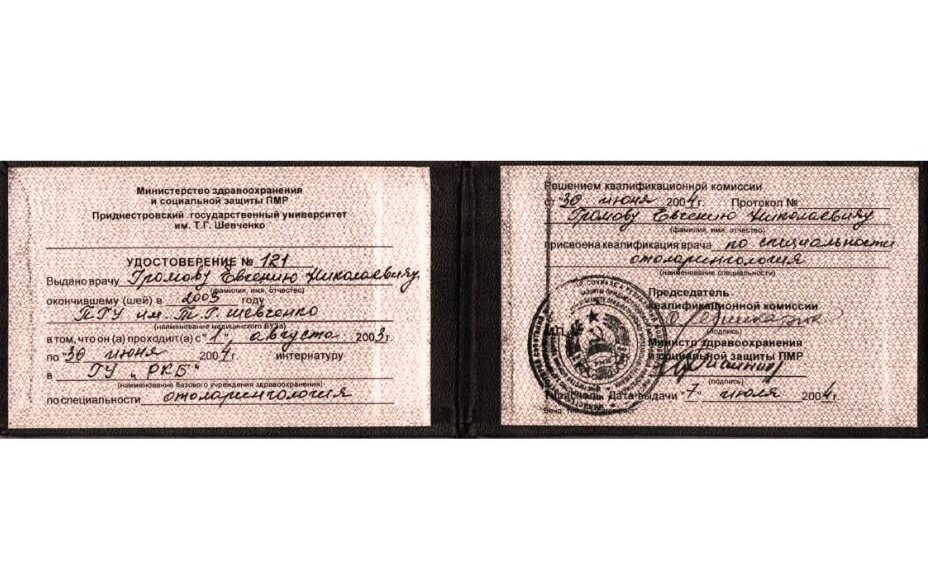 Министерство здравоохранения
и социальной защиты ПМР
Приднестровский государственный университет
им. Т.Г. Шевченко
УДОСТОВЕРЕНИЕ № 121
Выдано врачу Громову Евгению Николаевичу
(фамилия, имя, отчество)
окончившему (шей) в 2003 году
ПГУ им. Т.Г. Шевченко
(наименование медицинского вуза)
в том, что он (а) проходил (а) с "1" августа 2003г.
по 30 июня 2004г. интернатуру
в ГУ "РКБ"
(наименование базового учреждения здравоохранения)
по специальности отоларингология
Решением квалификационной комиссии
от 30 июня 2004г. Протокол №
Громову Евгению Николаевичу
(фамилия, имя, отчество)
присвоена квалификация врача по специальности
отоларингология
(наименование специальности)
Председатель
квалификационной комиссии
(подпись)
Министр здравоохранения
и социальной защиты ПМР
(подпись)
г. Тирасполь Дата выдачи "7" июля 2004г.